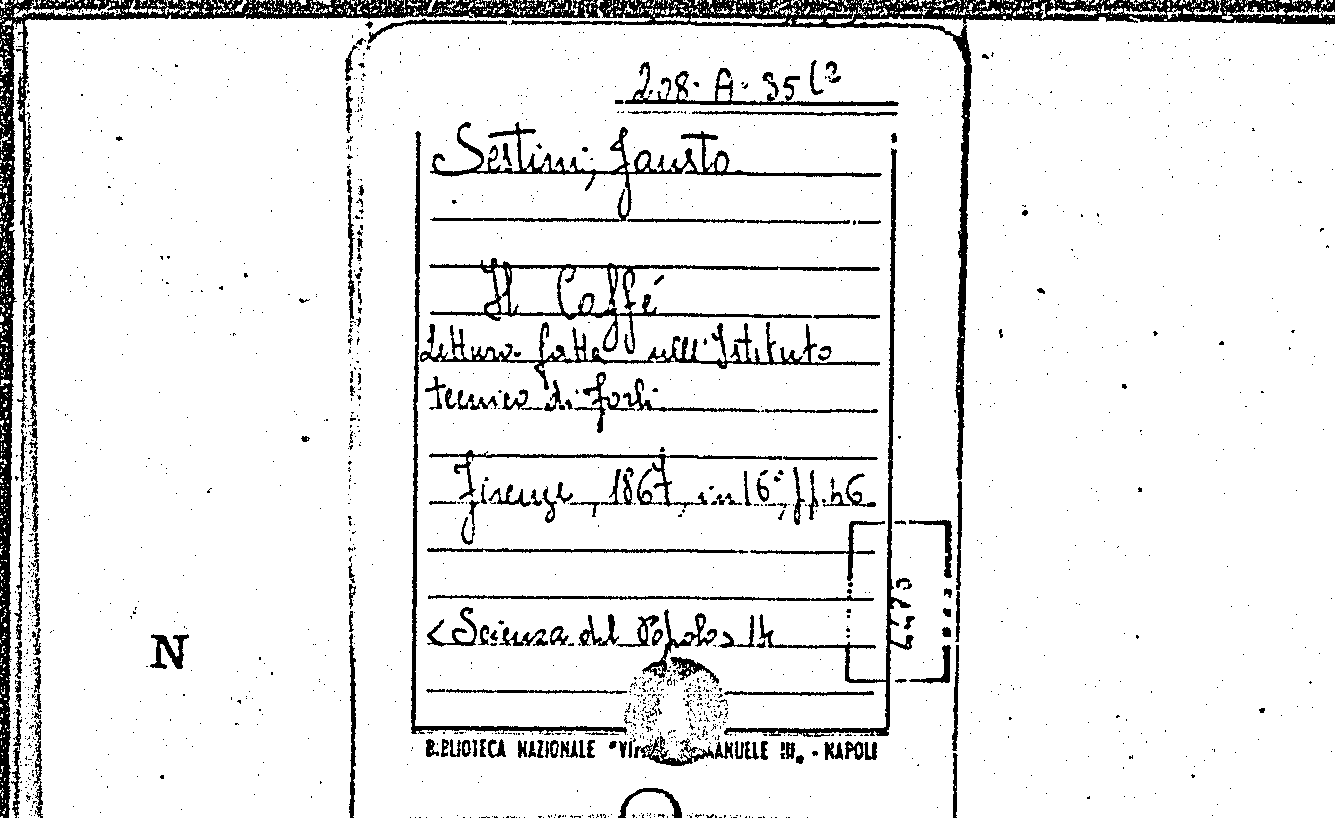 208. A. 35 (2
Sestini, Fausto
Il Caffé
Lettura fatta nell'Istituto
tecnico di Forlì
Firenze, 1867, in 16°, pp. 46
<Scienza del Popolo> 14
N
BIBLIOTECA NAZIONALE "VI MANUELE III. - NAPOLI